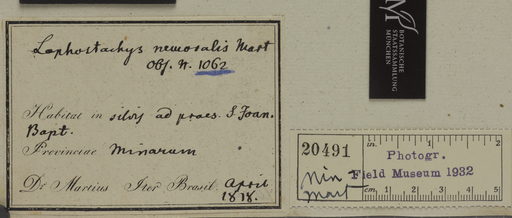 Lophostachys nemoralis Mart
Obs. n. 1062
Habitat in silvis ad praes. S. Joan.
Bapt.
Provinciae Minarum
Dr Martius Iter Brasil. April
1818.
M
BOTANISCHE
STAATSSAMMLUNG
MÜNCHEN
20491
in. 1 2
Photogr.
Field Museum 1932
Min
Mart
cm. 1 2 3 4 5